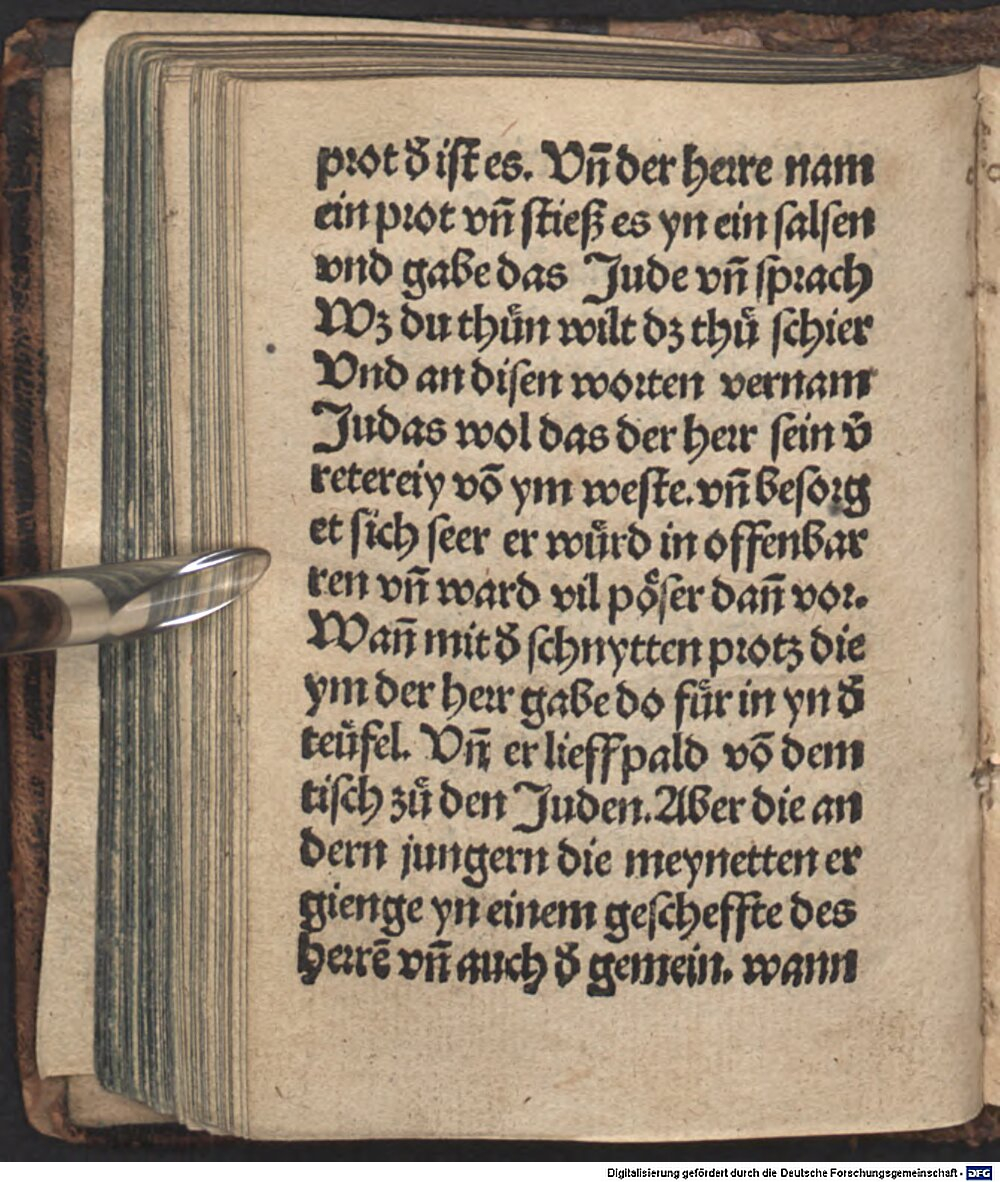 prot đ ist es. Vn̄ der herre nam
ein prot vn̄ stieß es yn ein salsen
vnd gabe das Jude vn̄ sprach
Wz du thůn wilt dz thů schier
Vnd an disen worten vernam
Judas wol das der herr sein v̄
retereiy vō ym weste. vn̄ besorg
et sich seer er wuͤrd in offenbar
ren vn̄ ward vil poͤser dan̄ vor.
Wan̄ mit đ schnytten protz die
ym der herr gabe do fuͤr in yn đ
teuͤfel. Vn̄ er lieff pald vō dem
tisch zuͤ den Juden. Aber die an
dern jungern die meynetten er
gienge yn einem gescheffte des
herrē vn̄ auch đ gemein. wann
Digitalisierung gefördert durch die Deutsche Forschungsgemeinschaft - DFG